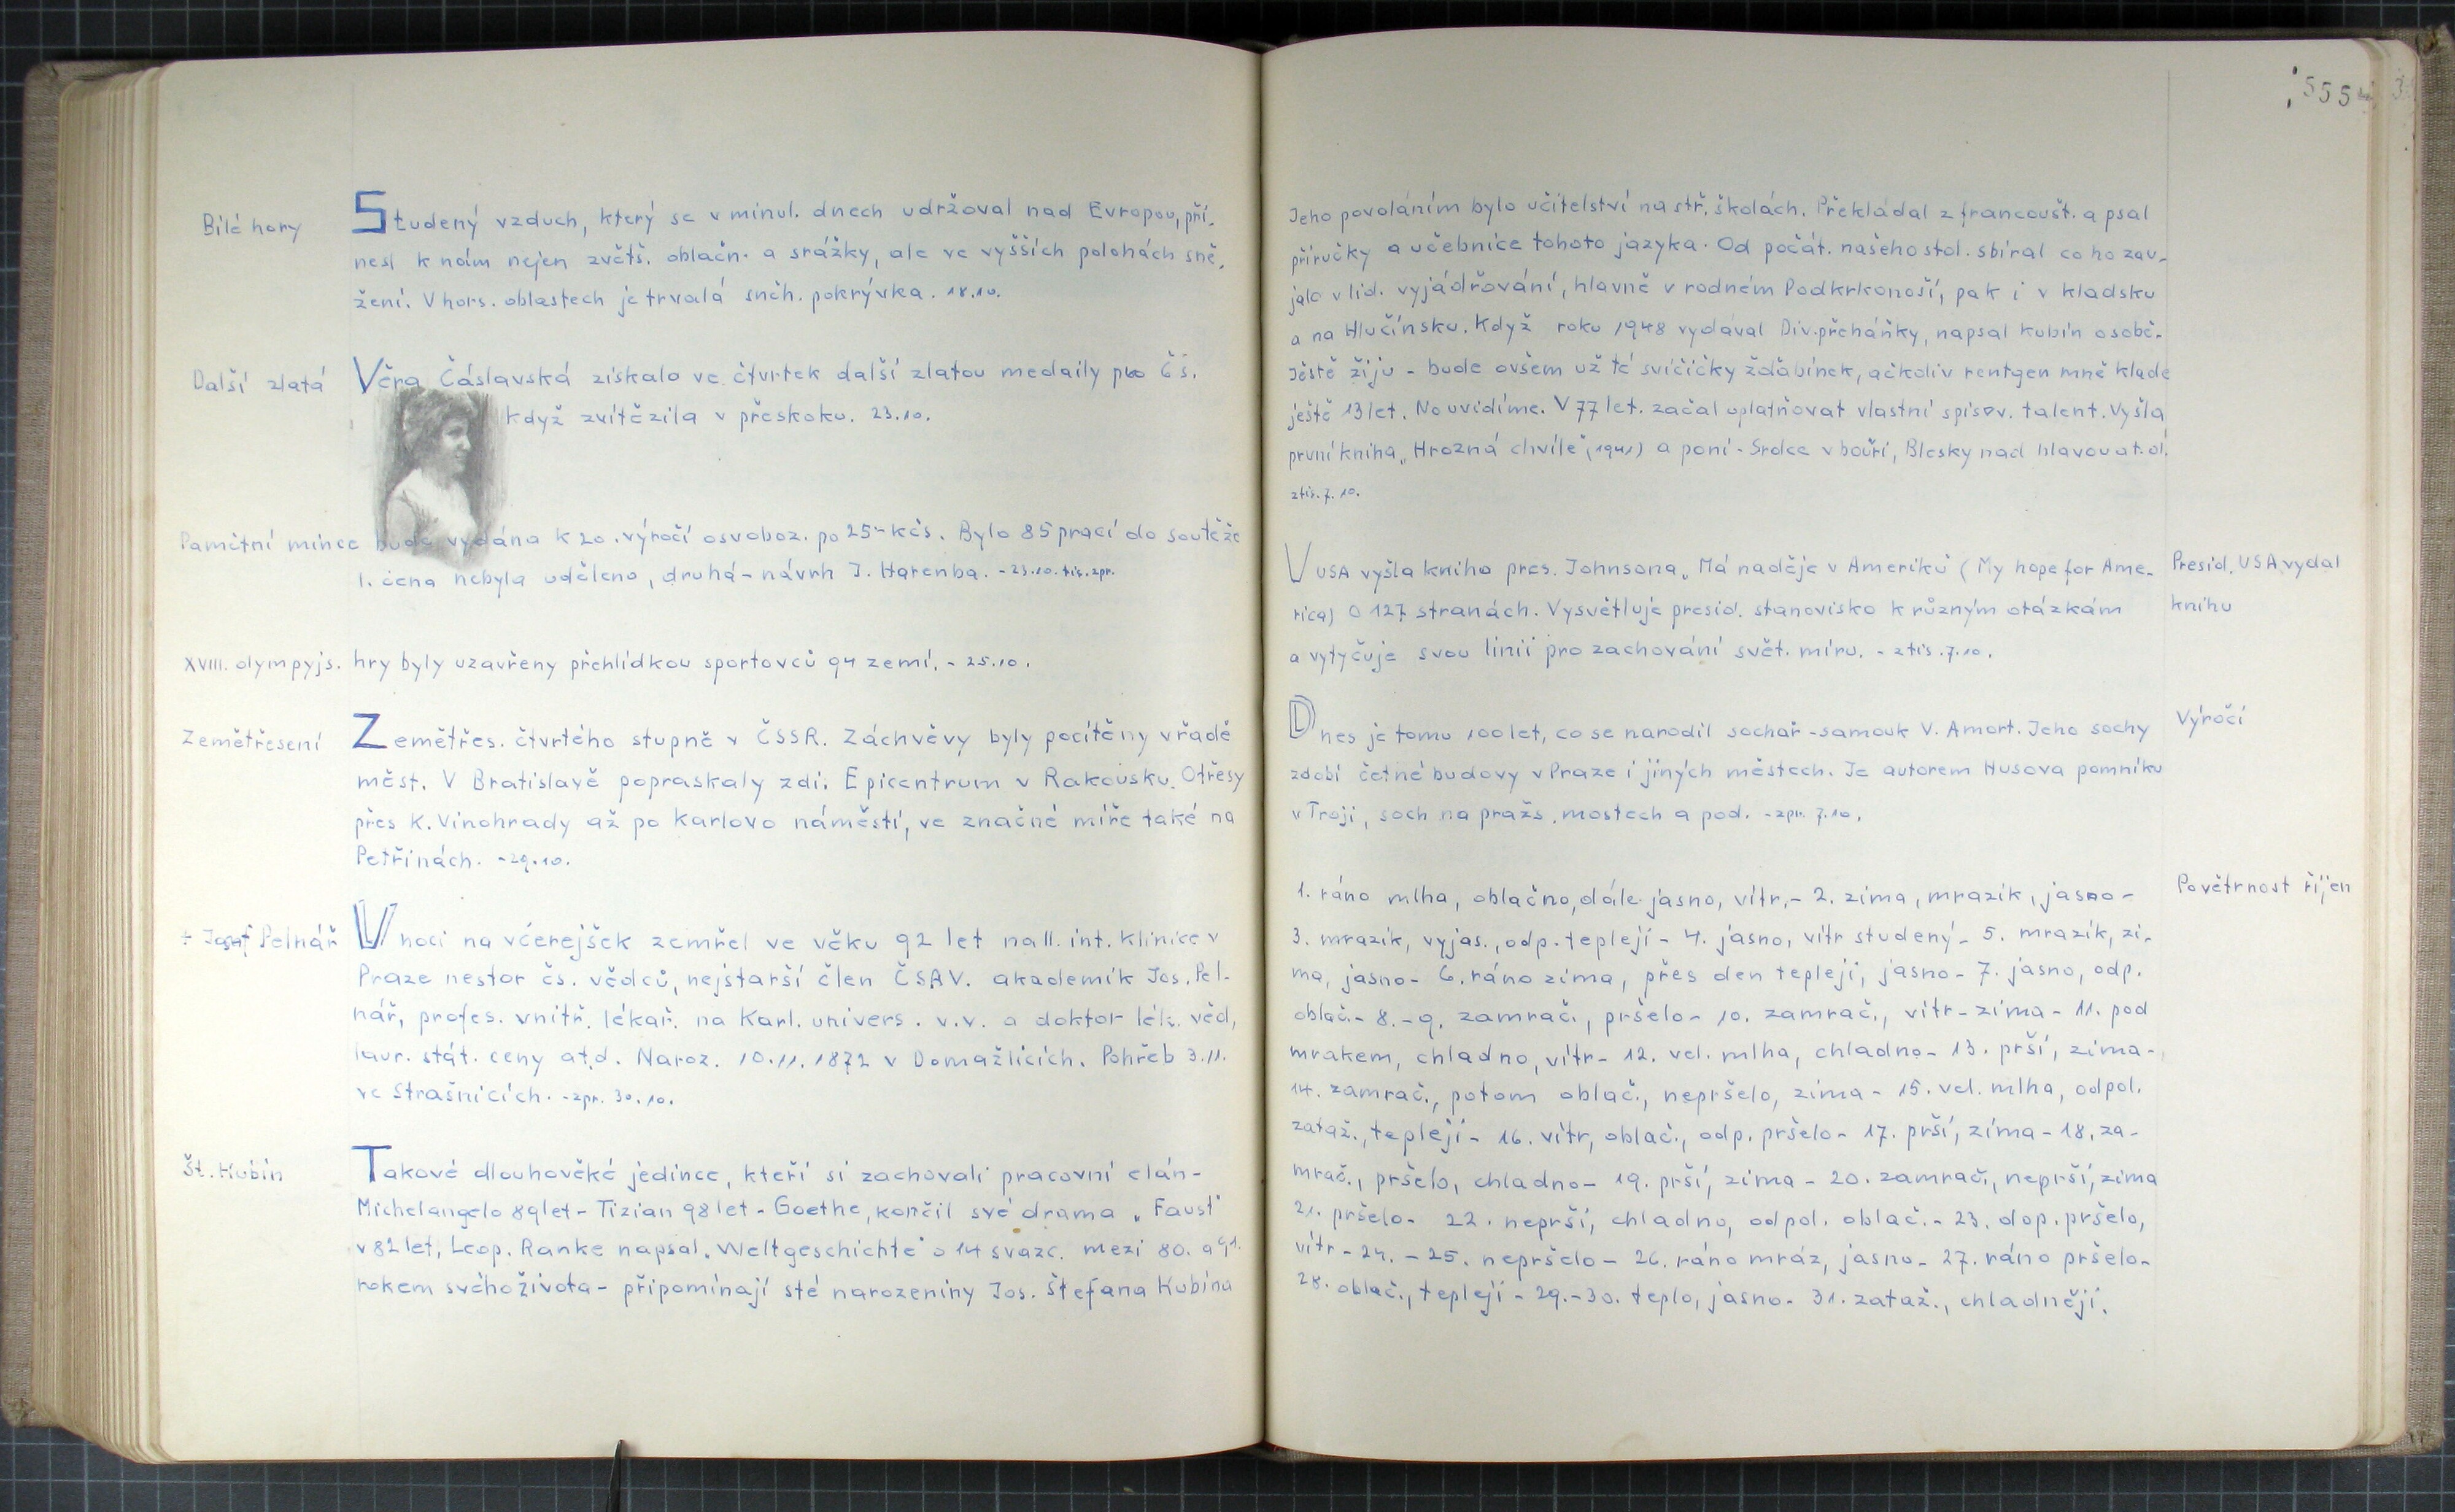 Bílé hory
Studený vzduch, který se v minul. dnech udržoval nad Evropou, při-
nesl k nám nejen zvětš. oblačn. a srážky, ale ve vyšších polohách sně-
žení. V hors. oblastech je trvalá sněh. pokrývka. 18.10.
Další zlatá
Věra Čáslavská získala ve čtvrtek další zlatou medaily pro Čs.
když zvítězila v přeskoku. 23.10.
Pamětní mince bude vydána k 20. výročí osvoboz. po 25 kčs. Bylo 85 prací do soutěže
1. cena nebyla udělena, druhá - návrh J. Harenba. - 23.10. tis. zpr.
XVIII. olympyjs. hry byly uzavřeny přehlídkou sportovců 94 zemí. - 25.10.
Zemětřesení
Zemětřes. čtvrtého stupně v ČSSR. Záchvěvy byly pocítěny v řadě
měst. V Bratislavě popraskaly zdi. Epicentrum v Rakousku. Otřesy
přes K. Vinohrady až po Karlovo náměstí, ve značné míře také na
Petřinách. - 29.10.
+ Josef Pelnář
V noci na včerejšek zemřel ve věku 92 let na II. int. klinice v
Praze nestor čs. vědců, nejstarší člen ČSAV. akademik Jos. Pel-
nář, profes. vnitř. lékař. na Karl. univers. v.v. a doktor lék. věd,
laur. stát. ceny at.d. Naroz. 10.11.1872 v Domažlicích. Pohřeb 3.11.
ve Strašnicích. - zpr. 30.10.
Št. Kubín
Takové dlouhověké jedince, kteří si zachovali pracovní elán -
Michelangelo 89 let - Tizian 98 let - Goethe, končil své drama „Faust"
v 82 let, Leop. Ranke napsal „Weltgeschichte" o 14 svazc. mezi 80. a 91.
rokem svého života - připomínají sté narozeniny Jos. Štefana Kubína
5554
Jeho povoláním bylo učitelství na stř. školách. Překládal z francoušt. a psal
příručky a učebnice tohoto jazyka. Od počát. našeho stol. sbíral co ho zau-
jalo v lid. vyjádřování, hlavně v rodném Podkrkonoší, pak i v kladsku
a na Hlučínsku. Když roku 1948 vydával Div. přeháňky, napsal Kubín o sobě -
Ještě žiju - bude ovšem už té svíčičky žďabínek, ačkoliv rentgen mně klade
ještě 13 let. No uvidíme. V 77 let. začal uplatňovat vlastní spisov. talent. Vyšla
první kniha „Hrozná chvíle" (1941) a poní - Srdce v bouři, Blesky nad hlavou at.d.
z tis. 7.10.
V USA vyšla kniha pres. Johnsona „Má naděje v Ameriku (My hope for Ame-
rica) O 127 stranách. Vysvětluje presid. stanovisko k různým otázkám
a vytyčuje svou linii pro zachování svět. míru. - z tis. 7.10.
Presid. USA vydal
knihu
Dnes je tomu 100 let, co se narodil sochař - samouk V. Amort. Jeho sochy
zdobí četné budovy v Praze i jiných městech. Je autorem Husova pomníku
v Troji, soch na pražs. mostech a pod. - zpr. 7.10.
Výročí
1. ráno mlha, oblačno, dále jasno, vítr. - 2. zima, mrazík, jasno -
3. mrazík, vyjas., odp. tepleji - 4. jasno, vítr studený - 5. mrazík, zi-
ma, jasno - 6. ráno zima, přes den tepleji, jasno - 7. jasno, odp.
oblač. - 8. - 9. zamrač., pršelo - 10. zamrač., vítr - zima - 11. pod
mrakem, chladno, vítr - 12. vel. mlha, chladno - 13. prší, zima -
14. zamrač., potom oblač., nepršelo, zima - 15. vel. mlha, odpol.
zataž., tepleji - 16. vítr, oblač., odp. pršelo - 17. prší, zima - 18. za-
mrač., pršelo, chladno - 19. prší, zima - 20. zamrač., neprší, zima
21. pršelo - 22. neprší, chladno, odpol. oblač. - 23. dop. pršelo,
vítr - 24. - 25. nepršelo - 26. ráno mráz, jasno - 27. ráno pršelo -
28. oblač., tepleji - 29. - 30. teplo, jasno - 31. zataž., chladněji.
Povětrnost říjen